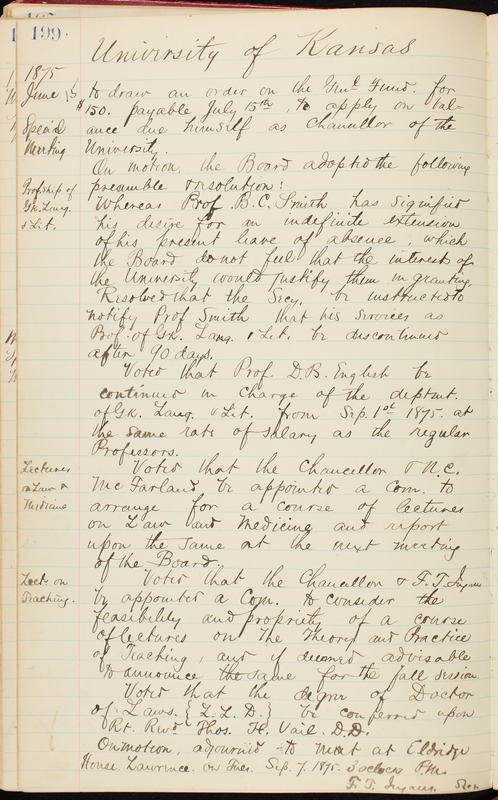 199
University of Kansas
1875
June 15
Special
Meeting
to draw an order on the Genl Fund. for
$150. payable July 15th, to apply on bal-
ance due himself as Chancellor of the
University.
On motion, the Board adopted the following
preamble & resolution:
Profship of
Gk. Lang.
& Lit.
Whereas Prof. B. C. Smith has signified
his desire for an indefinite extension
of his present leave of absence, which
the Board do not feel that the interest of
the University would justify them in granting.
Resolved that the Secy. be instructed to
notify Prof Smith that his services as
Prof. of Gk. Lang. & Lit. be discontinued
after 90 days.
Voted that Prof. D.B. English be
continued in charge of the deptmt.
of Gk. Lang. & Lit. from Sep. 1st 1875. at
the same rate of salary as the regular
Professors.
Lectures
on Law &
Medicine
Voted that the Chancellor & N.C.
McFarland be appointed a Com. to
arrange for a course of lectures
on Law and Medicine and report
upon the same at the next meeting
of the Board.
Lects. on
Teaching.
Voted that the Chancellor & F. T. Ingalls
be appointed a Com. to consider the
feasibility and propriety of a course
of lectures on the Theory and Practice
of Teaching, and if deemed advisable
to announce the same for the fall session.
Voted that the degree of Doctor
of Laws. {L.L.D.} be conferred upon
Rt. Revd Thos. H. Vail. D.D.
On motion, adjourned to meet at Eldridge
House Lawrence. on Tues. Sep. 7. 1875. 3 oclock P.M.
F. T. Ingalls.